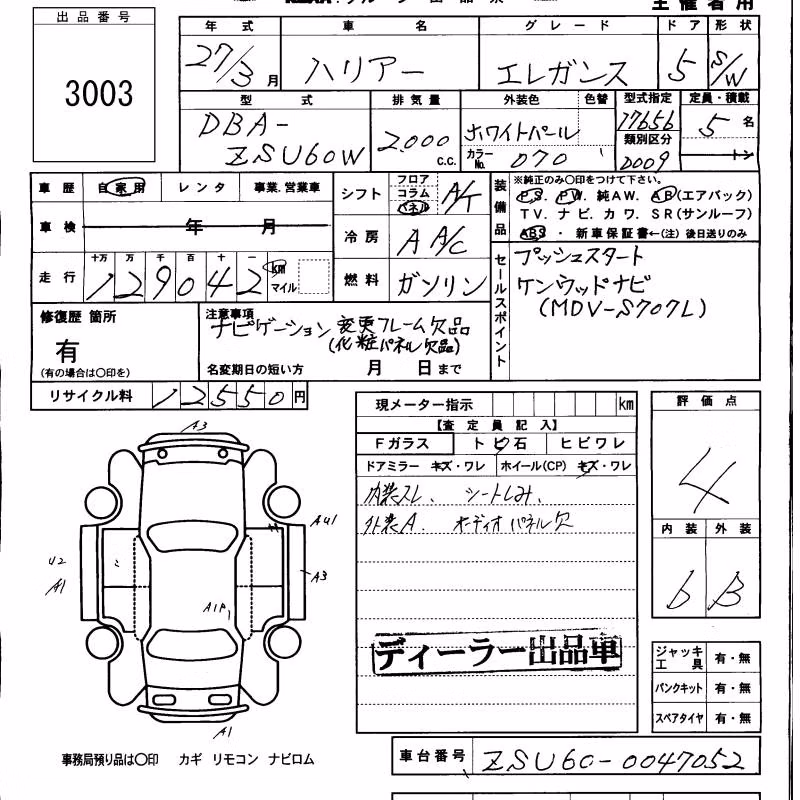 主催者用
出品番号
3003
年式 車名 グレード ドア 形状
27/3月 ハリアー エレガンス 5 S/W
型式 排気量 外装色 色替 型式指定 定員・積載
DBA-ZSU60W 2000 C.C. ホワイトパール 17656 5名
カラーNo. 070 類別区分 0009 トン
車歴 自家用 レンタ 事業.営業車
シフト フロア コラム パネル A/T
車検 年 月
冷房 A A/C
走行 十万 万 千 百 十 一
129042 km マイル
燃料 ガソリン
装備品
※純正のみ〇印をつけて下さい。
PS. PW. 純AW. AB(エアバック)
TV. ナビ. カワ. SR(サンルーフ)
ABS ・ 新車保証書←(注) 後日送りのみ
セールスポイント
プッシュスタート
ケンウッドナビ
(MDV-S707L)
修復歴 箇所
有
(有の場合は〇印を)
注意事項
ナビゲーション変更フレーム欠品
(化粧パネル欠品)
名変期日の短い方 月 日まで
リサイクル料 12550円
現メーター指示 km
【査定員記入】
Fガラス トビ石 ヒビワレ
ドアミラー キズ・ワレ ホイール(CP) キズ・ワレ
内装スレ、シートしみ、
外装A. オーディオパネル欠
ディーラー出品車
評価点
4
内装 外装
b B
ジャッキ工具 有・無
パンクキット 有・無
スペアタイヤ 有・無
A3
AU1
A3
U2
A1
A1P
A1
事務局預り品は〇印 カギ リモコン ナビロム
車台番号 ZSU60-0047052